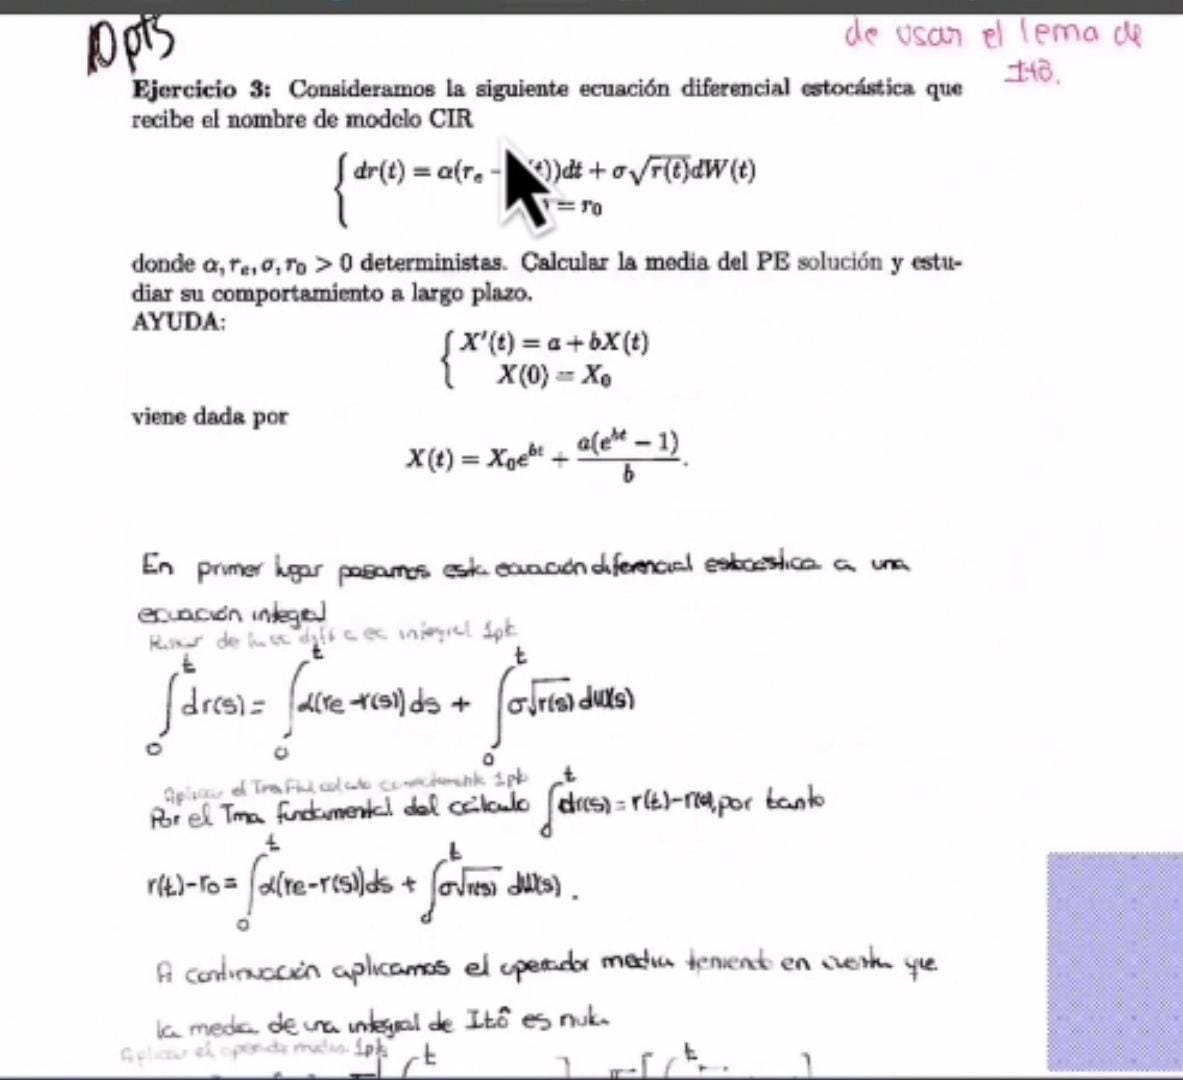 10 pts
de usar el lema de
Itô.
Ejercicio 3: Consideramos la siguiente ecuación diferencial estocástica que
recibe el nombre de modelo CIR
dr(t) = α(r_e - (t))dt + σ√r(t)dW(t)
= r_0
donde α, r_e, σ, r_0 > 0 deterministas. Calcular la media del PE solución y estu-
diar su comportamiento a largo plazo.
AYUDA:
X'(t) = a + bX(t)
X(0) = X_0
viene dada por
X(t) = X_0e^{bt} + a(e^{bt} - 1)/b.
En primer lugar pasamos esta ecuación diferencial estocástica a una
ecuación integral
Pasar de ec diff a ec integral 1pt
∫_0^t dr(s) = ∫_0^t α(re - r(s))ds + ∫_0^t σ√r(s) dW(s)
Aplicar el Tma Fund calculo correctamente 1pt
Por el Tma fundamental del cálculo ∫_0^t dr(s) = r(t) - r(0), por tanto
r(t) - r_0 = ∫_0^t α(re - r(s))ds + ∫_0^t σ√r(s) dW(s).
A continuación aplicamos el operador media teniendo en cuenta que
la media de una integral de Itô es nula.
Aplicar el operador media 1pt